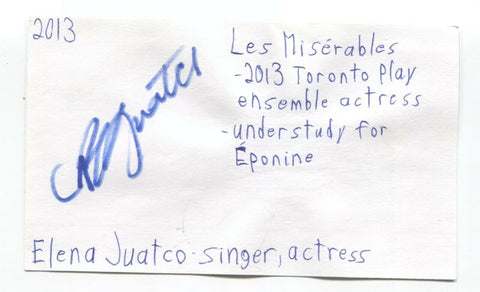 2013
Les Misérables
-2013 Toronto Play
ensemble actress
-understudy for
Éponine
Elena Juatco-singer, actress